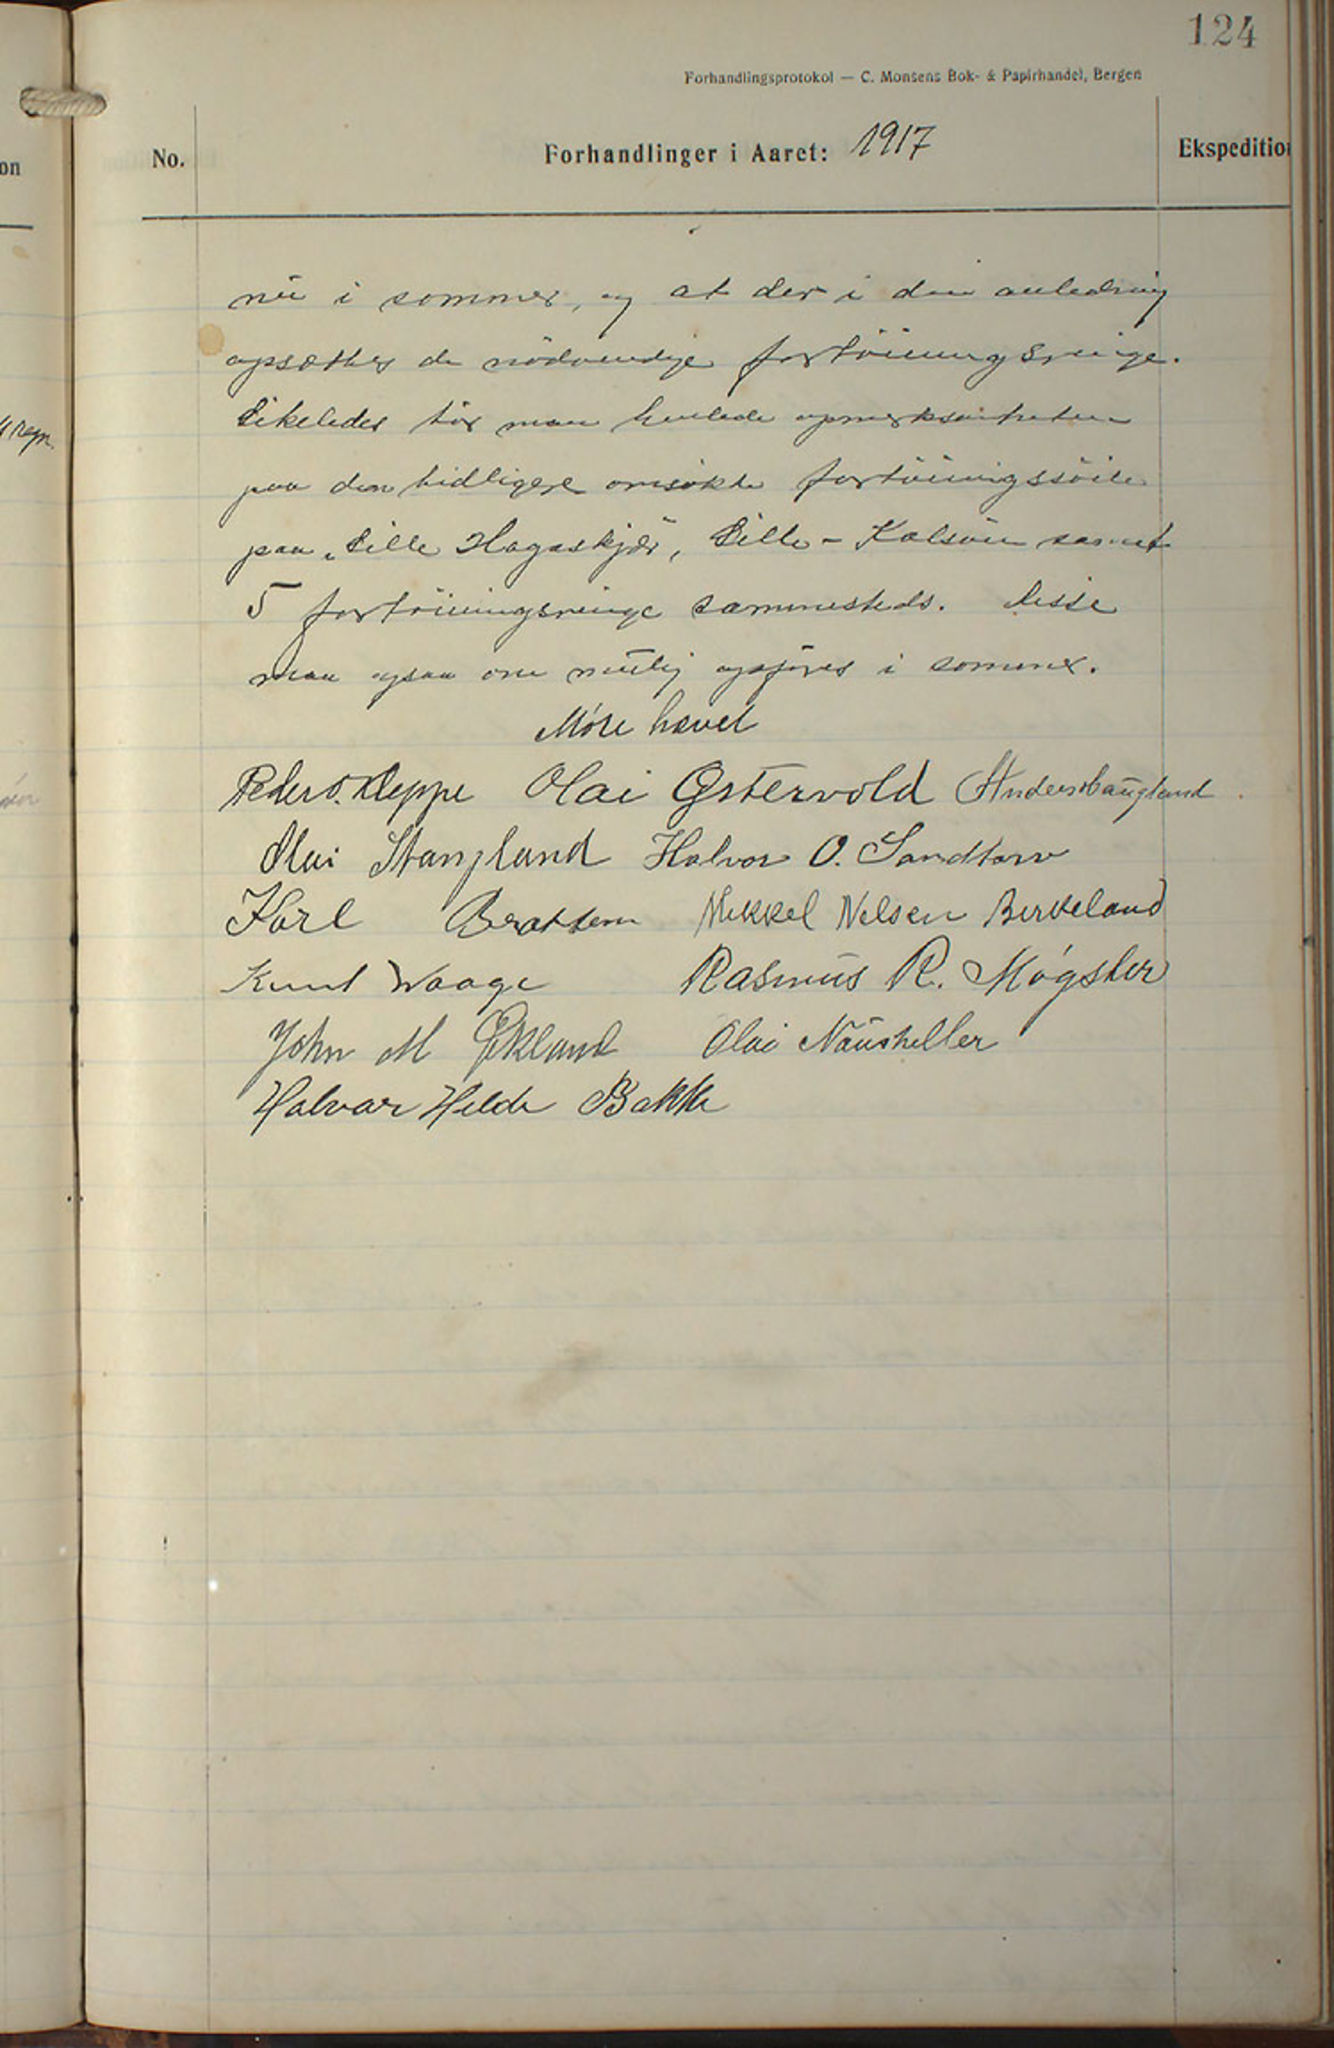 124
Forhandlingsprotokol — C. Monsens Bok- & Papirhandel, Bergen
on
No.
Forhandlinger i Aaret: 1917
Ekspeditio
nu i sommer, og at der i den anledning
opsættes de nödvendige fortöiningsringe.
Likeledes tör man henlede opmerksomheten
paa den tidligere omsökte fortöiningssöile
paa "Lille Hagaskjær, Lille-Kalsöin samt
5 fortöiningsringe sammesteds. Disse
maa ogsaa om mulig opföres i sommer.
Möte hævet
Peder O. Kleppe Olai Østervold Anders Haugland
Olai Stangland Halvor O. Sandtorv
Karl Brattem Mikkel Nelsen Birkeland
Knut Waage Rasmus R. Møgster
John M Økland Olai Naustheller
Halvar Helde Bakke